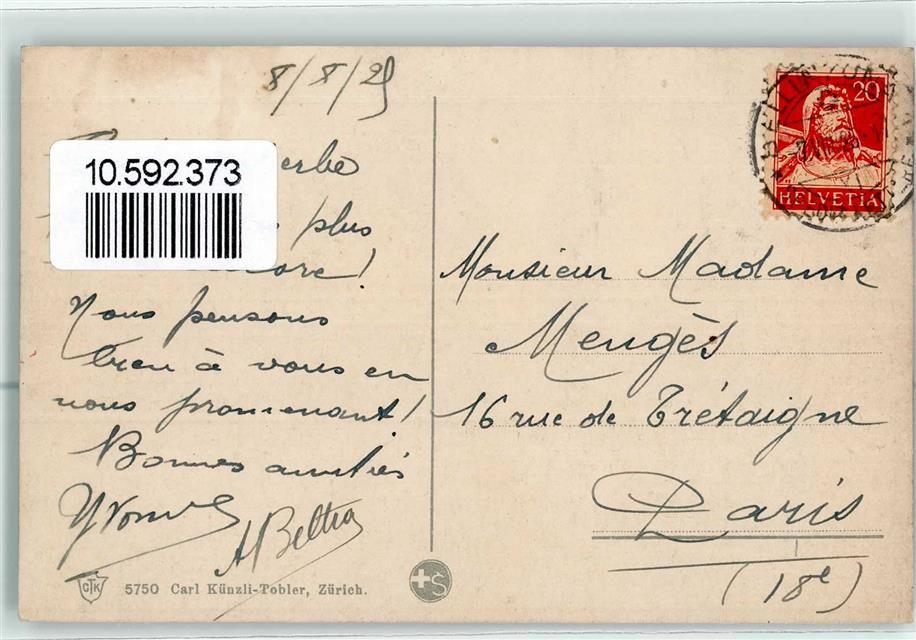 8/8/25
10.592.373
erbe
plus
ore!
Nous pensons
bien à vous en
nous promenant!
Bonnes amitiés
Yvonne
ABeltra
CTK
5750 Carl Künzli-Tobler, Zürich.
20
HELVETIA
BELLINZONA
Monsieur Madame
Mengès
16 rue de Trétaigne
Paris
(18e)